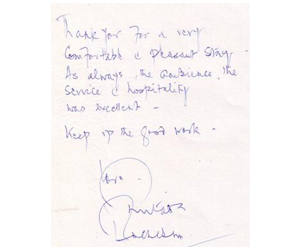 Thank you for a very
comfortable & pleasant stay -
As always, the ambience, the
service & hospitality
was excellent -
Keep up the good work -